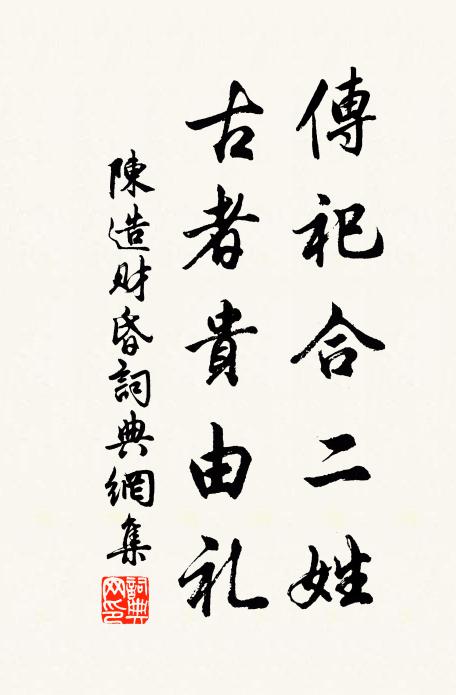 傳祀合二姓
古者貴由礼
陳造財昏詞典網集
詞典网印